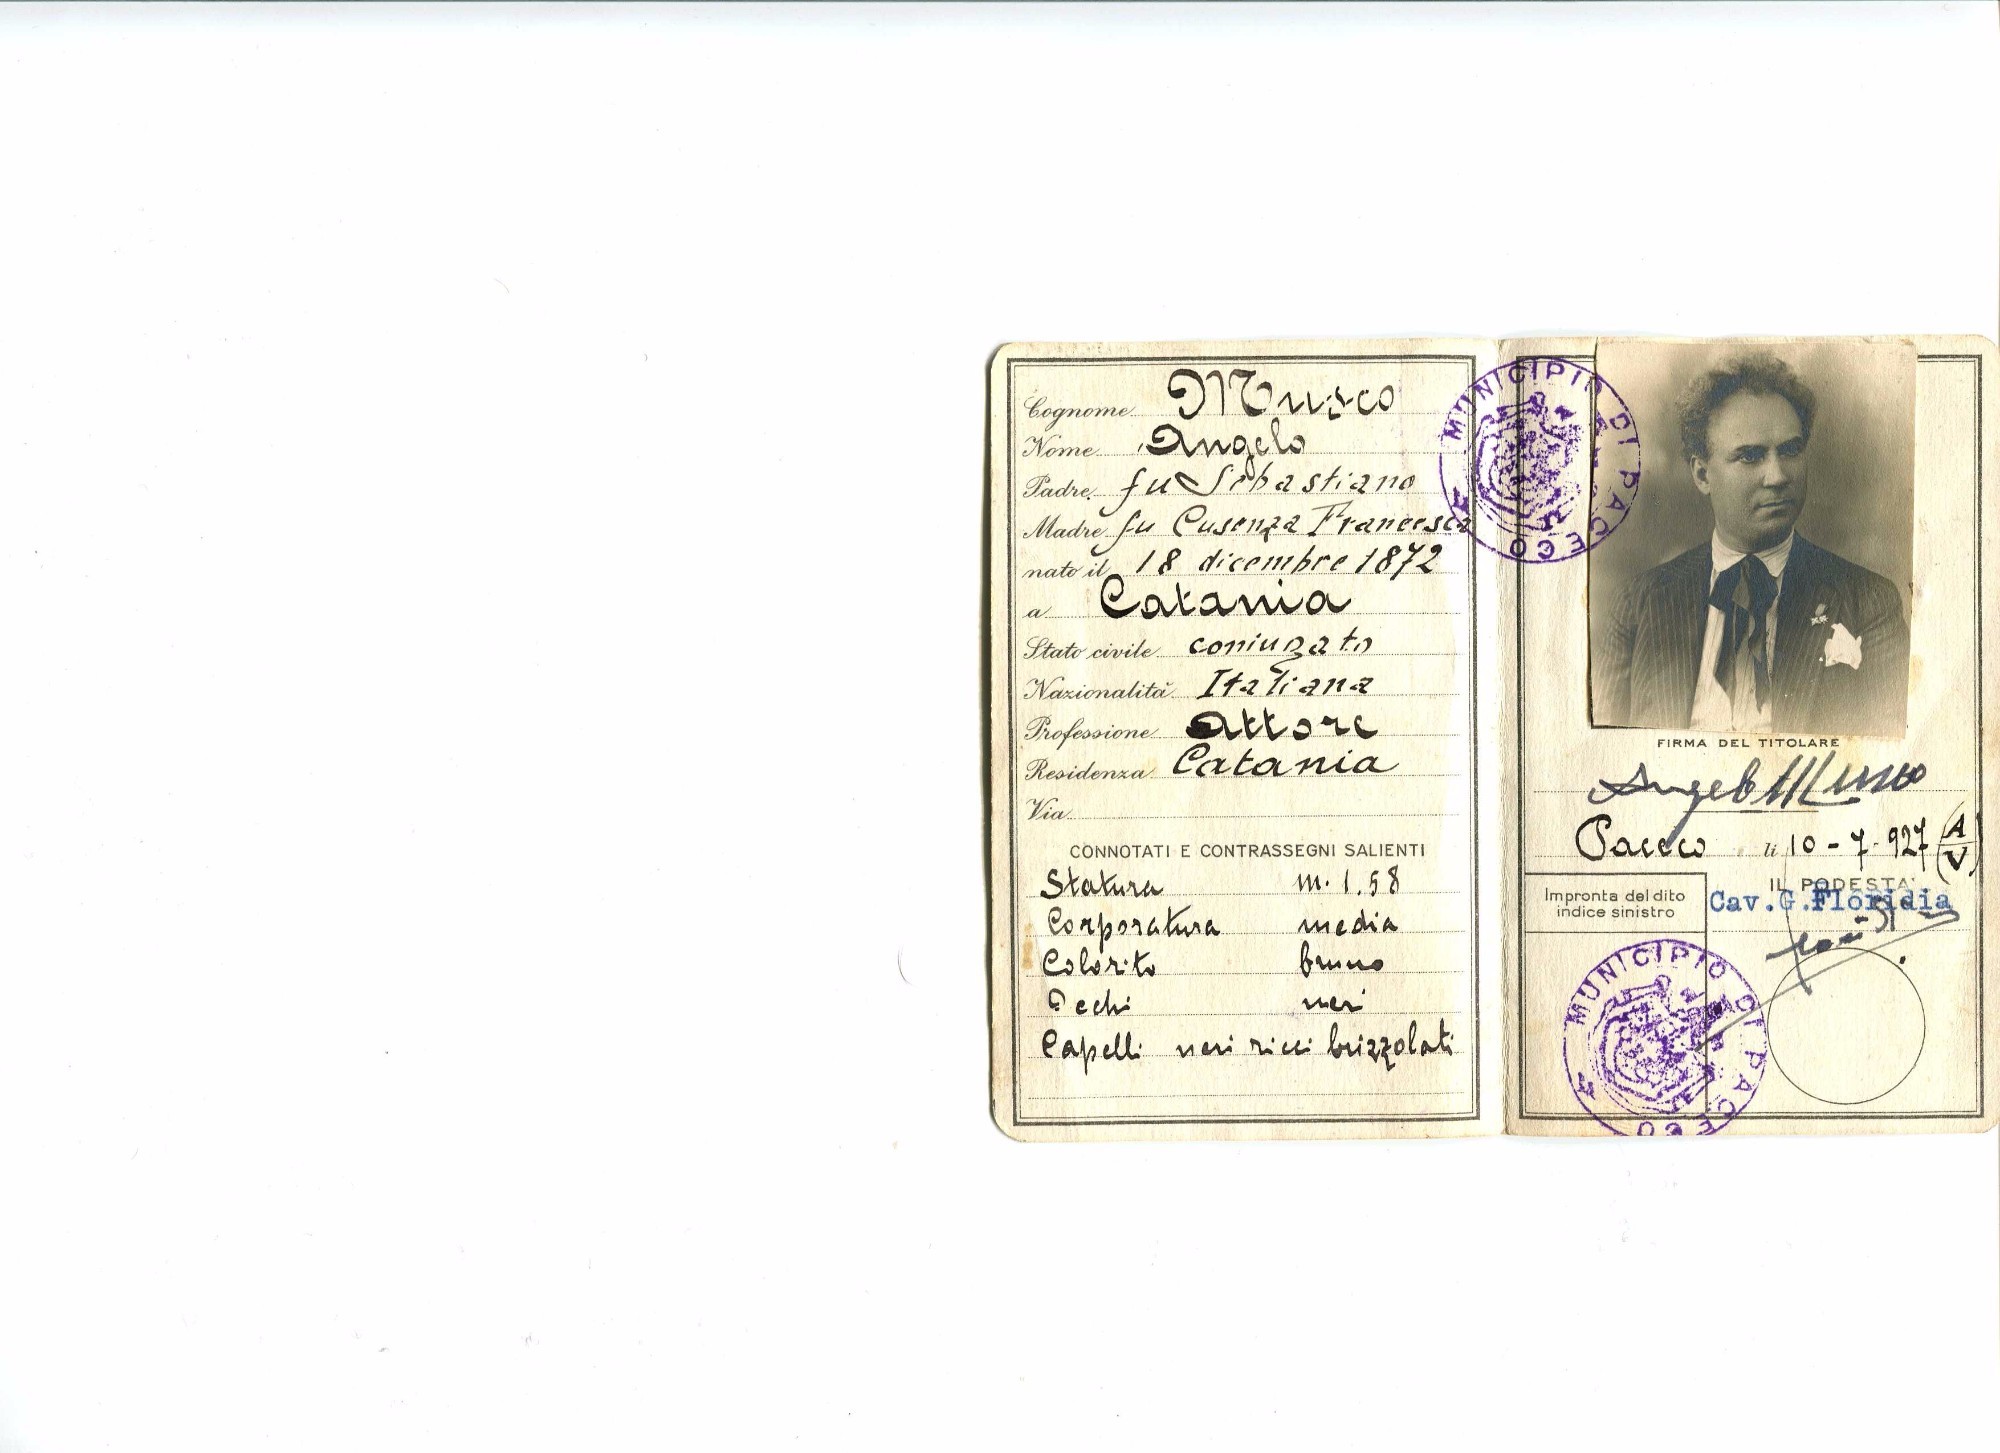 Cognome Musco
Nome Angelo
Padre fu Sebastiano
Madre fu Cusenza Francesca
nato il 18 dicembre 1872
a Catania
Stato civile coniugato
Nazionalità Italiana
Professione Attore
Residenza Catania
Via
CONNOTATI E CONTRASSEGNI SALIENTI
Statura m. 1.58
Corporatura media
Colorito bruno
Occhi neri
Capelli neri ricci brizzolati
MUNICIPIO DI PACECO
FIRMA DEL TITOLARE
Angelo Musco
Paceco li 10-7-927 (A/V)
IL PODESTA'
Cav.G.Floridia
Impronta del dito
indice sinistro
MUNICIPIO DI PACECO